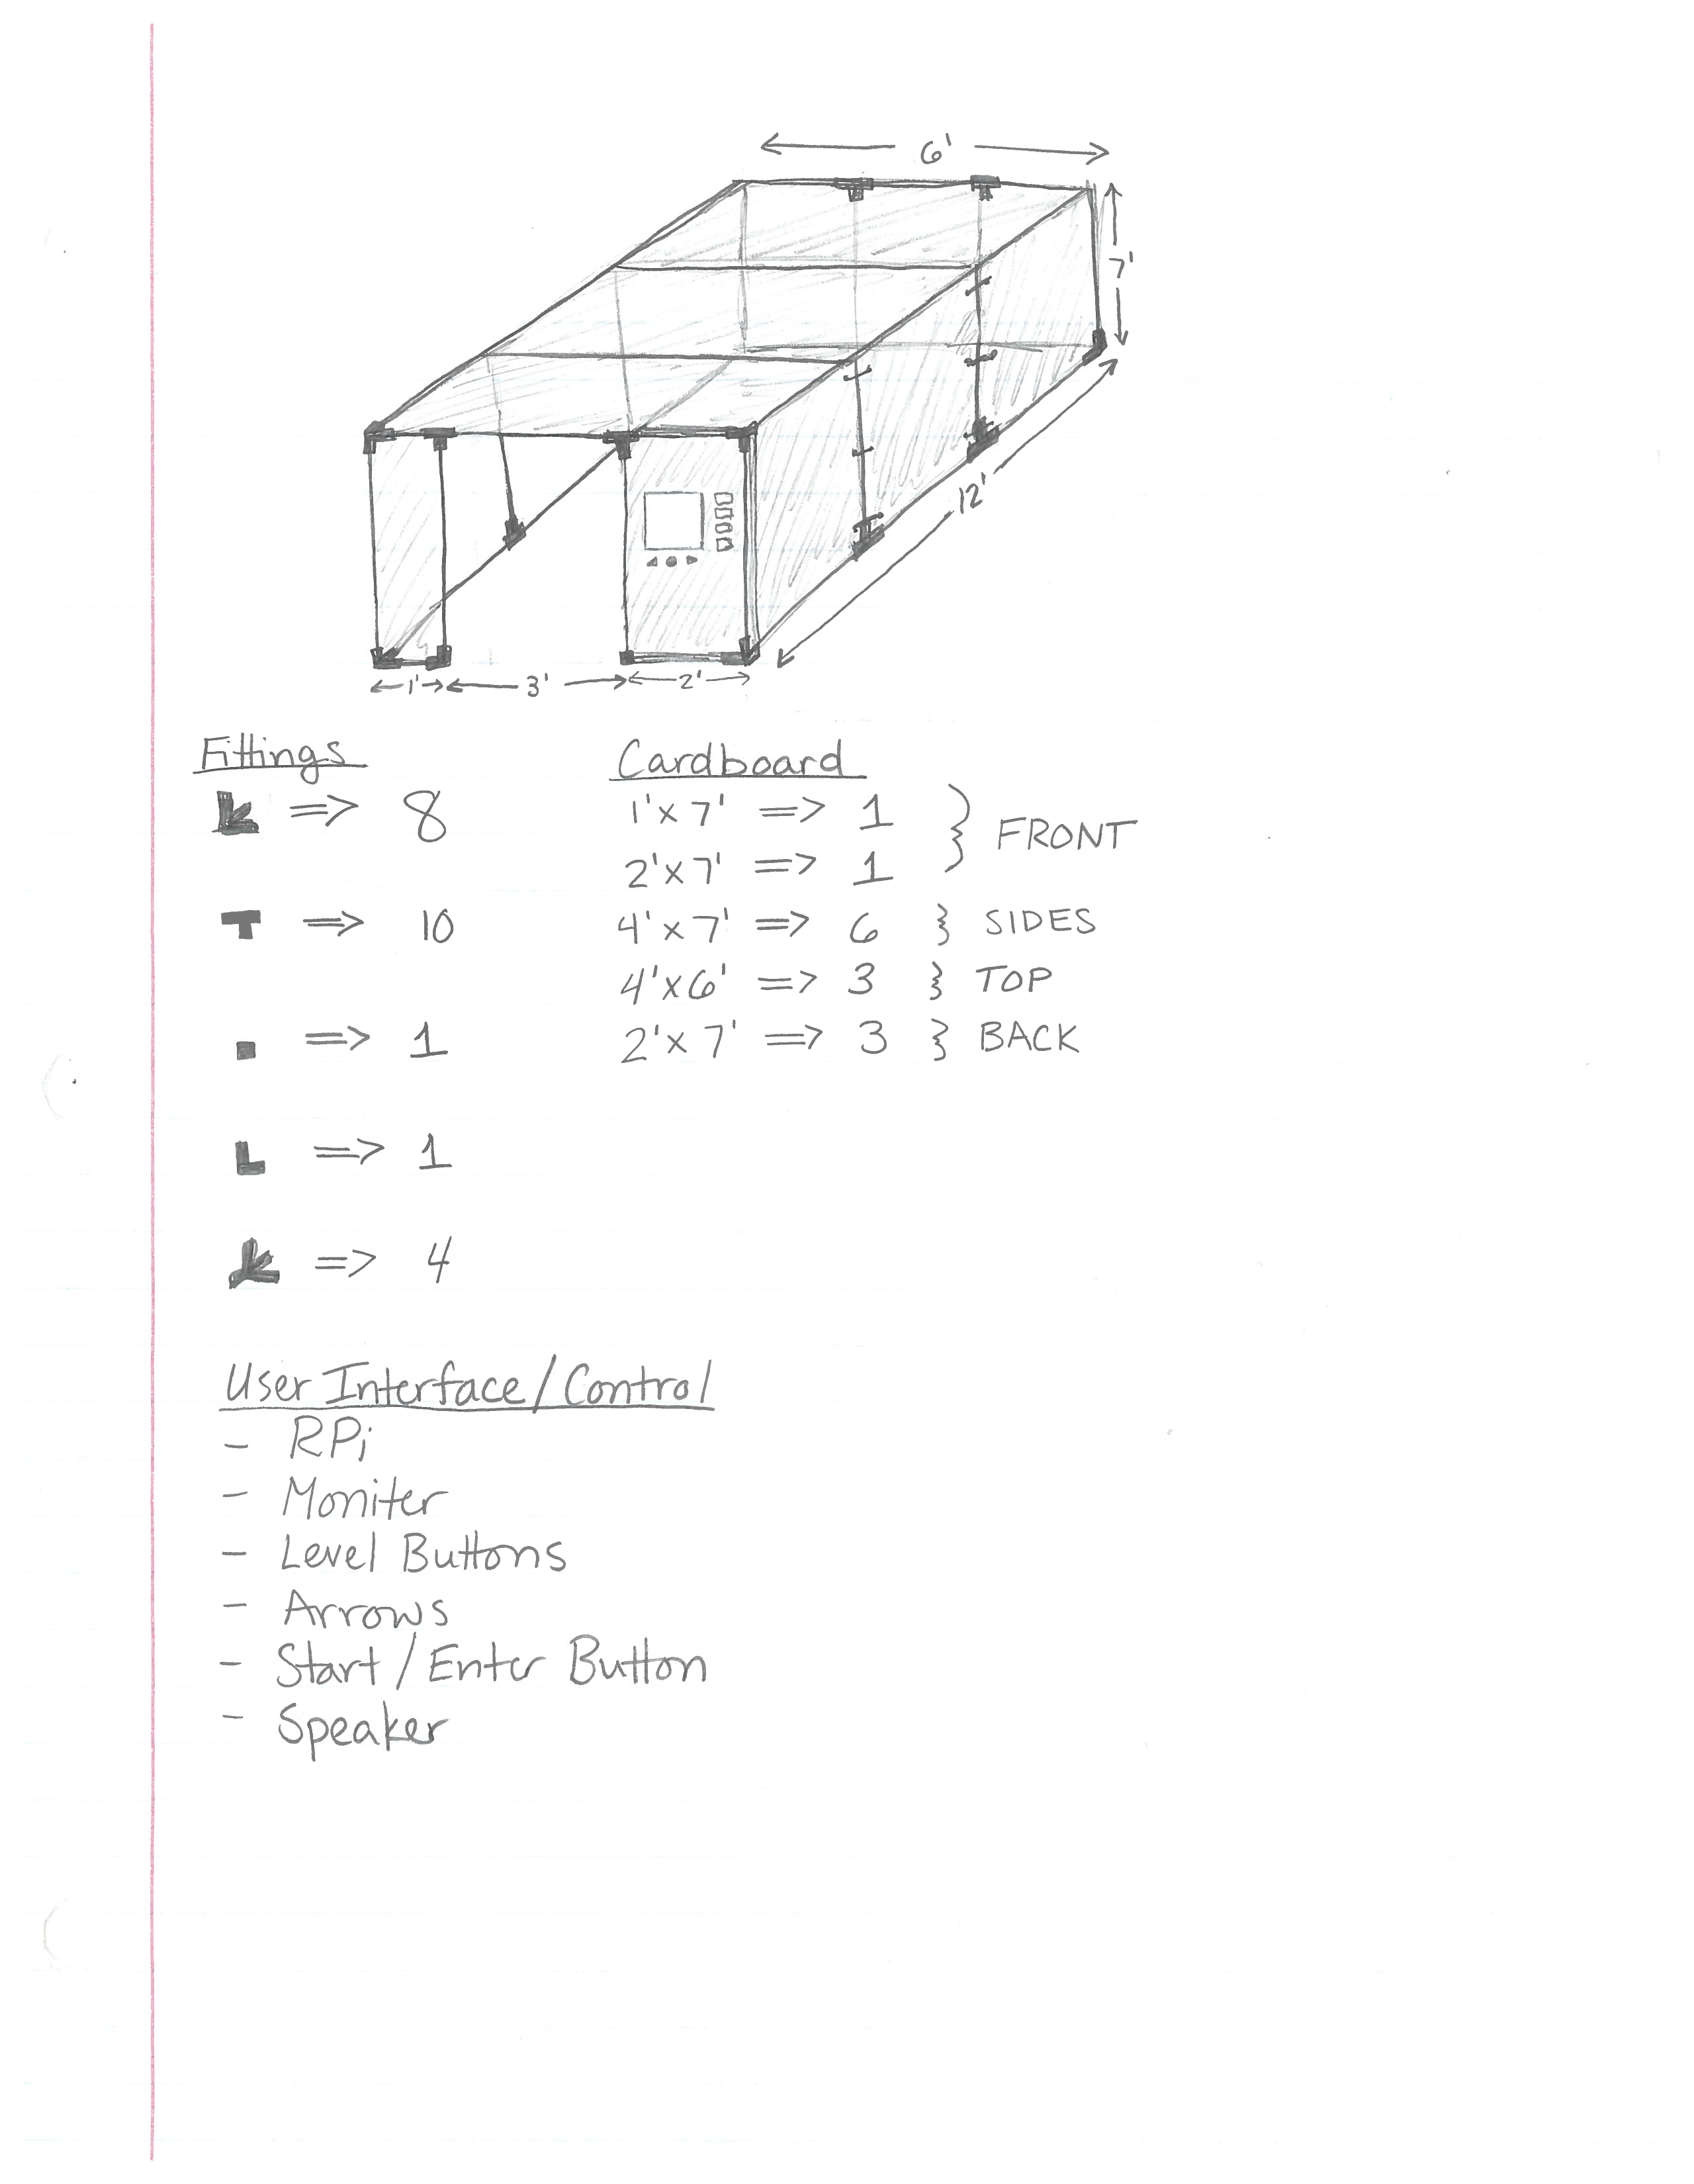 6'
7'
12'
1' 3' 2'
Fittings
=> 8
=> 10
=> 1
=> 1
=> 4
Cardboard
1' x 7' => 1
2' x 7' => 1
} FRONT
4' x 7' => 6 } SIDES
4' x 6' => 3 } TOP
2' x 7' => 3 } BACK
User Interface / Control
- RPi
- Moniter
- Level Buttons
- Arrows
- Start / Enter Button
- Speaker